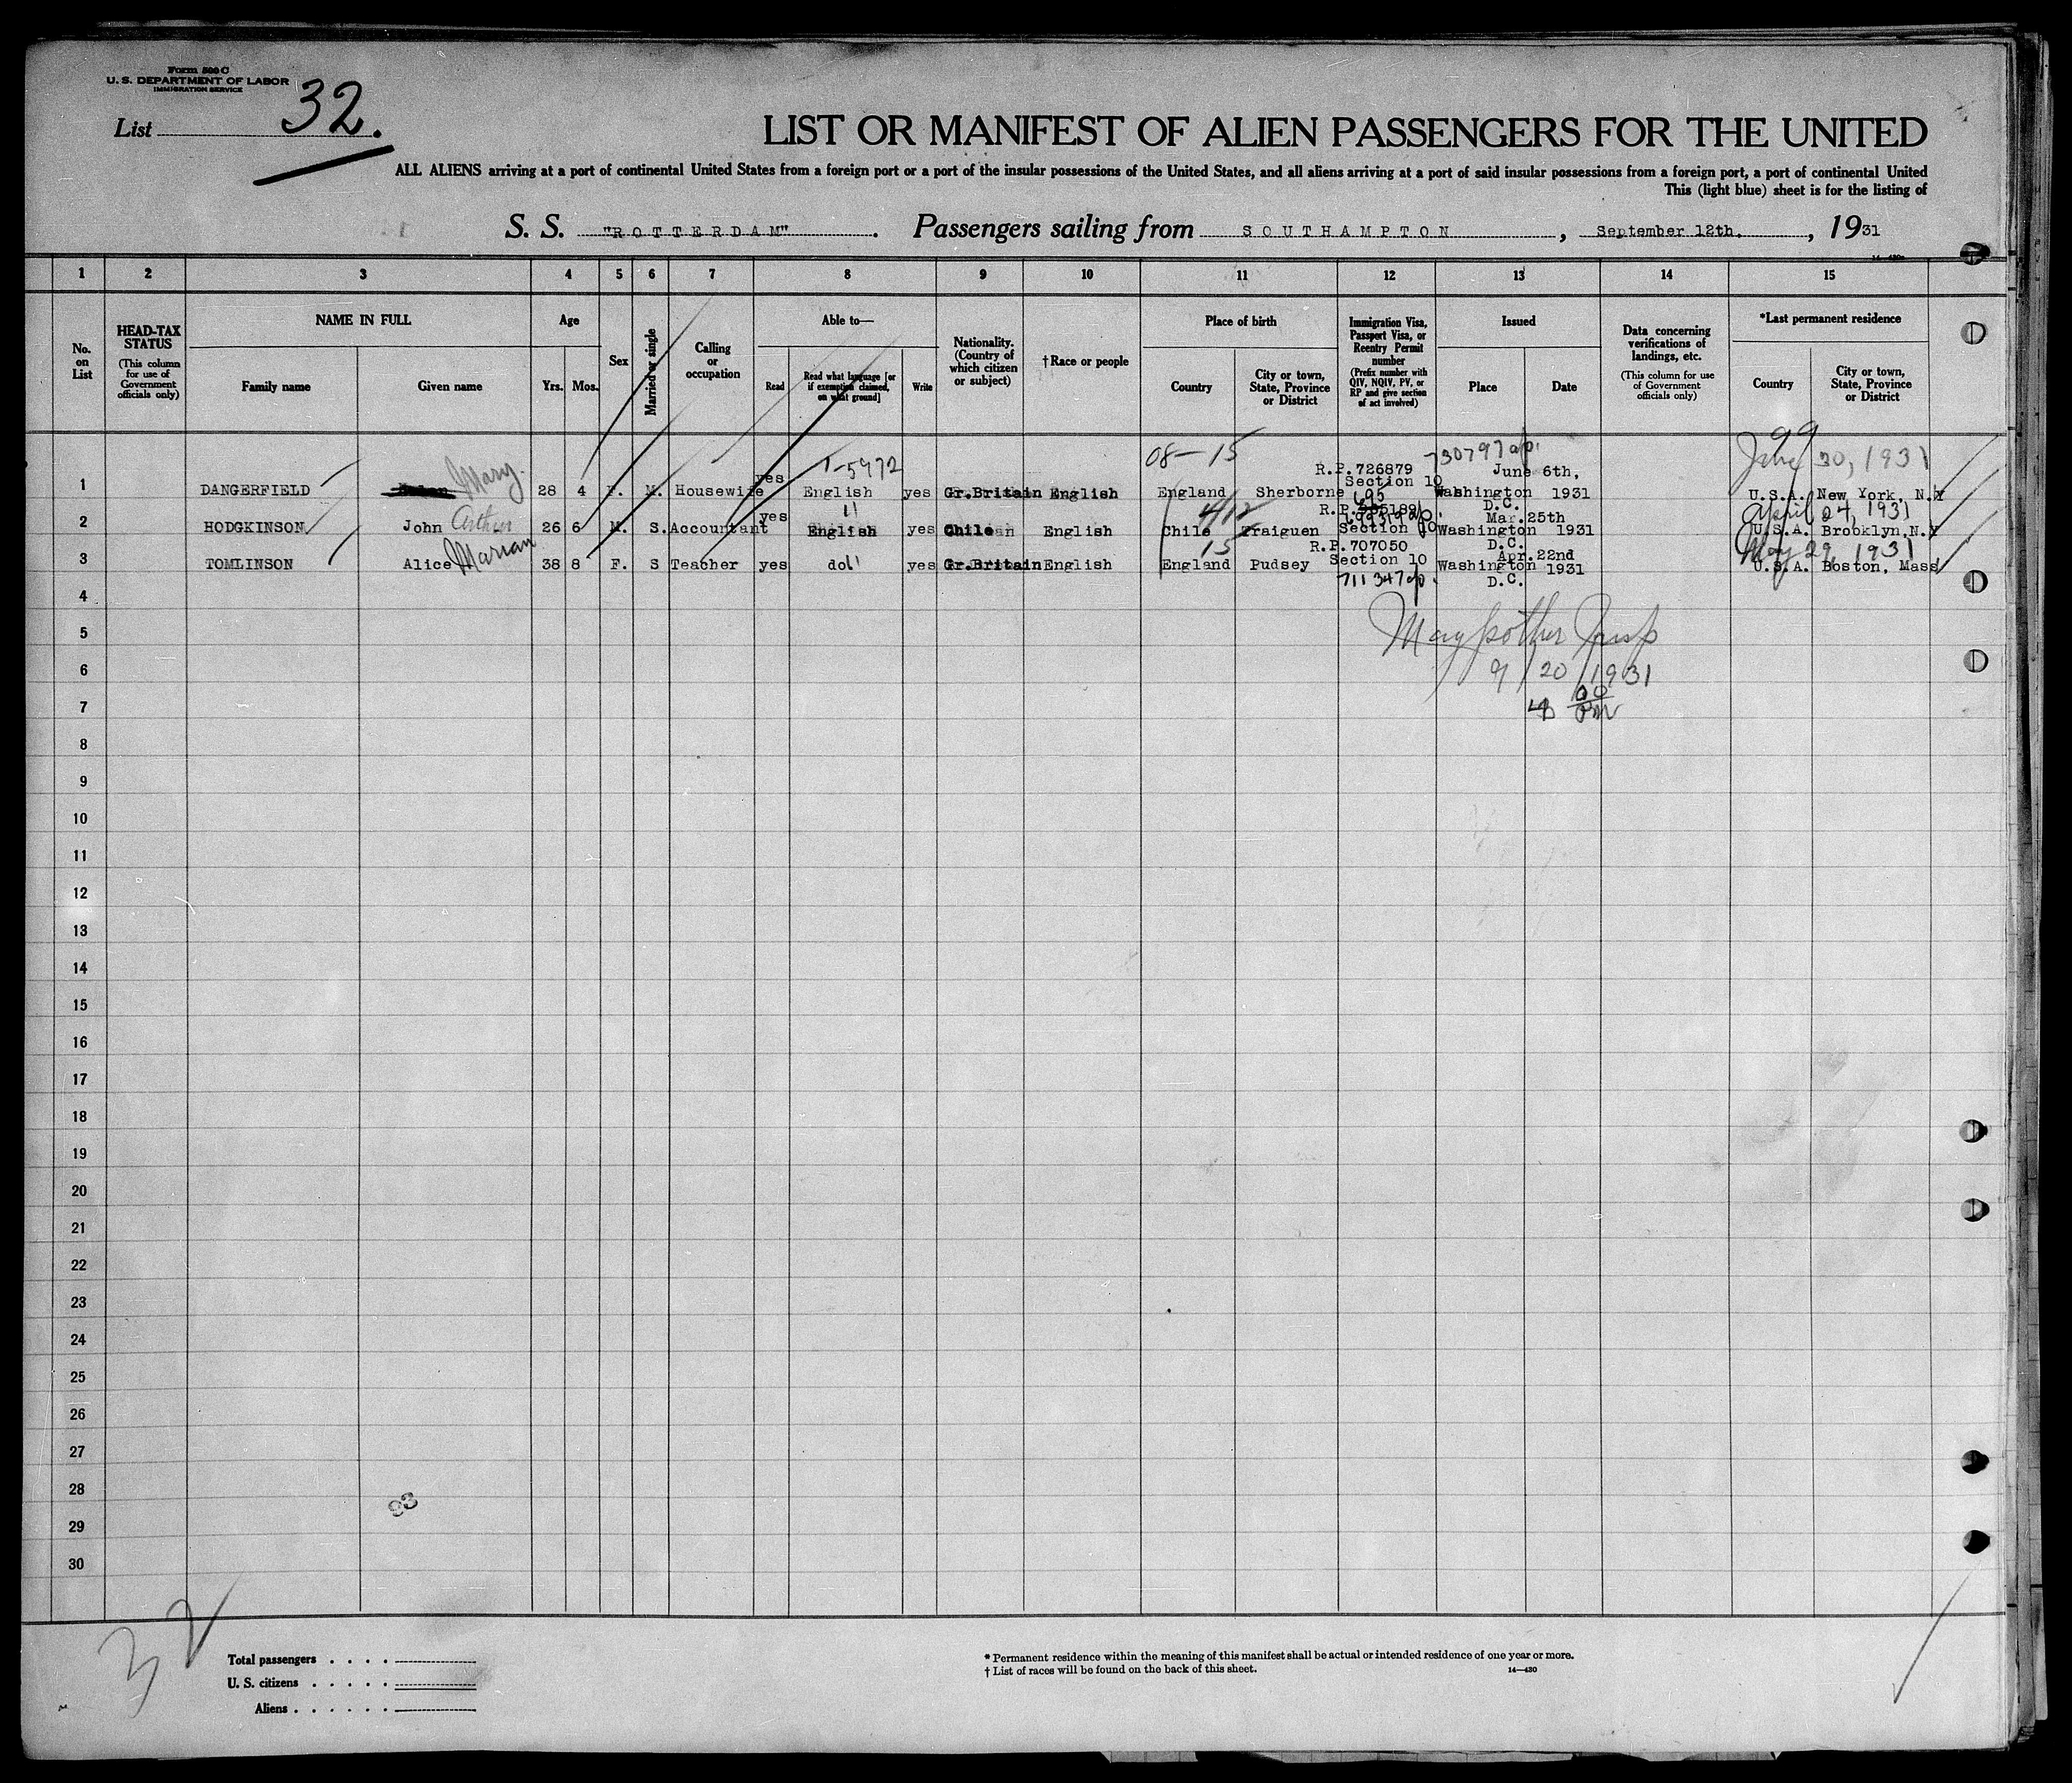 Form 500 C
U. S. DEPARTMENT OF LABOR
IMMIGRATION SERVICE
List 32.
LIST OR MANIFEST OF ALIEN PASSENGERS FOR THE UNITED
ALL ALIENS arriving at a port of continental United States from a foreign port or a port of the insular possessions of the United States, and all aliens arriving at a port of said insular possessions from a foreign port, a port of continental United
This (light blue) sheet is for the listing of
S. S. "ROTTERDAM". Passengers sailing from SOUTHAMPTON, September 12th., 1931
1 2 3 4 5 6 7 8 9 10 11 12 13 14 15
No. on List
HEAD-TAX STATUS (This column for use of Government officials only)
NAME IN FULL
Family name Given name
Age
Yrs. Mos.
Sex
Married or single
Calling or occupation
Able to—
Read Read what language [or if exemption claimed, on what ground] Write
Nationality. (Country of which citizen or subject)
† Race or people
Place of birth
Country City or town, State, Province or District
Immigration Visa, Passport Visa, or Reentry Permit number (Prefix number with QIV, NQIV, PV, or RP and give section of act involved)
Issued
Place Date
Data concerning verifications of landings, etc. (This column for use of Government officials only)
*Last permanent residence
Country City or town, State, Province or District
99
08-15 730797
1-5972 R.P.726879 June 6th, June 30, 1931
Section 10
1 DANGERFIELD Mary. 28 4 F. M. Housewife yes English yes Gr.Britain English England Sherborne Washington 1931 U.S.A. New York, N.Y
695 D.C.
4/12 R.P. Mar.25th April 24, 1931
2 HODGKINSON John Arthur 26 6 M. S. Accountant yes English yes Chile English Chile Traiguen Section 10 Washington 1931 U.S.A. Brooklyn,N.Y
15 R.P.707050 D.C. Apr.22nd May 29, 1931
3 TOMLINSON Alice Marian 38 8 F. S Teacher yes do yes Gr.Britain English England Pudsey Section 10 Washington 1931 U.S.A. Boston, Mass
711347 D.C.
4
5
6 9/20/1931
7
8
9
10
11
12
13
14
15
16
17
18
19
20
21
22
23
24
25
26
27
28
93
29
30
32
Total passengers . . . .
U. S. citizens . . . . .
Aliens . . . . . .
* Permanent residence within the meaning of this manifest shall be actual or intended residence of one year or more.
† List of races will be found on the back of this sheet. 14—430